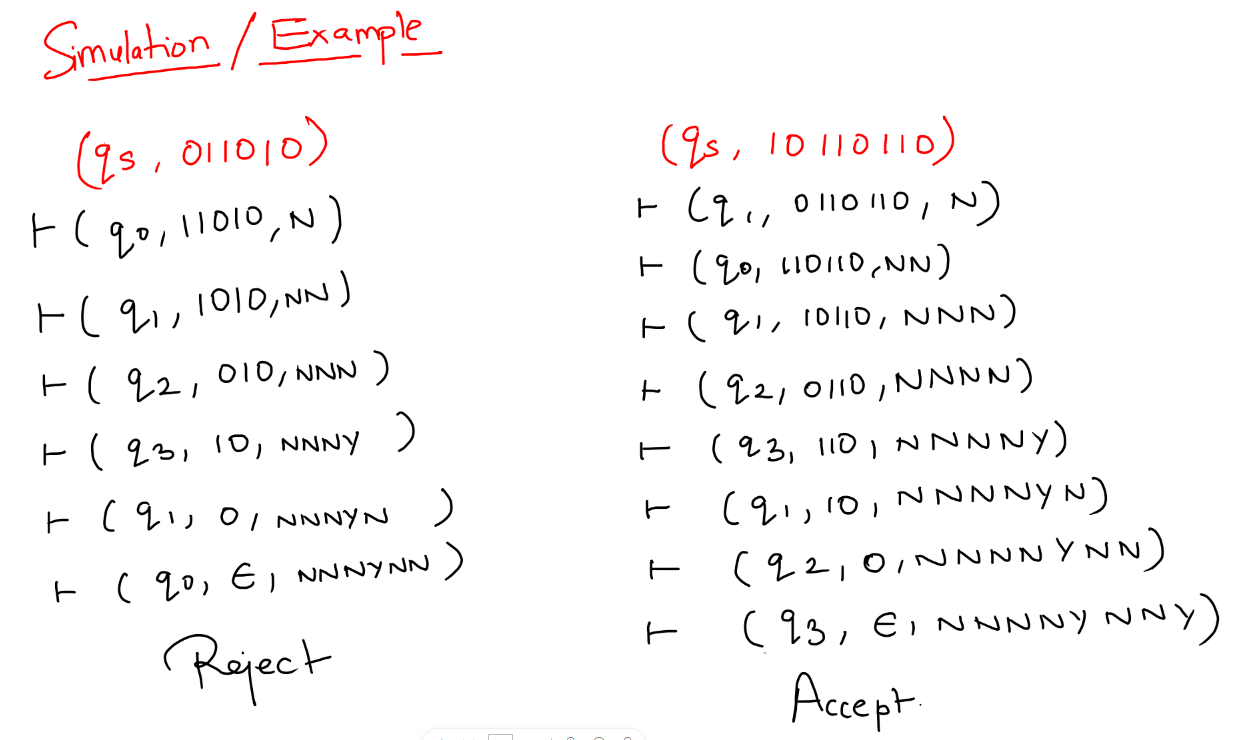 Simulation / Example
(qs, 011010)
⊢ (q0, 11010, N)
⊢ (q1, 1010, NN)
⊢ (q2, 010, NNN)
⊢ (q3, 10, NNNY)
⊢ (q1, 0, NNNYN)
⊢ (q0, ∈, NNNYNN)
Reject
(qs, 10110110)
⊢ (q1, 0110110, N)
⊢ (q0, 110110, NN)
⊢ (q1, 10110, NNN)
⊢ (q2, 0110, NNNN)
⊢ (q3, 110, NNNNY)
⊢ (q1, 10, NNNNYN)
⊢ (q2, 0, NNNNYNN)
⊢ (q3, ∈, NNNNYNNY)
Accept.